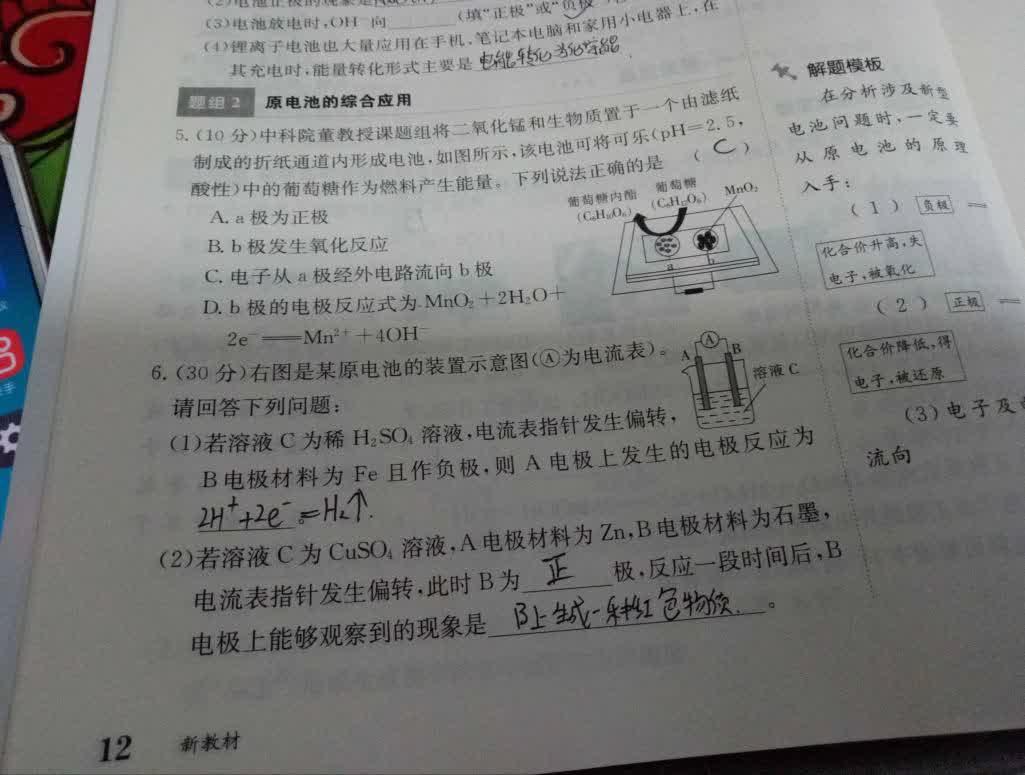 (3)电池放电时,OH⁻向 (填“正极”或“负极
(4)锂离子电池也大量应用在手机、笔记本电脑和家用小电器上,在
其充电时,能量转化形式主要是 电能转化为化学能
题组2 原电池的综合应用
5.(10分)中科院董教授课题组将二氧化锰和生物质置于一个由滤纸
制成的折纸通道内形成电池,如图所示,该电池可将可乐(pH=2.5,
酸性)中的葡萄糖作为燃料产生能量。下列说法正确的是 ( C )
葡萄糖内酯 葡萄糖 MnO₂
(C₆H₁₀O₆) (C₆H₁₂O₆)
a b
A. a极为正极
B. b极发生氧化反应
C. 电子从a极经外电路流向b极
D. b极的电极反应式为MnO₂+2H₂O+
2e⁻══Mn²⁺+4OH⁻
6.(30分)右图是某原电池的装置示意图(Ⓐ为电流表)。
A Ⓐ B
溶液C
请回答下列问题:
(1)若溶液C为稀H₂SO₄溶液,电流表指针发生偏转,
B电极材料为Fe且作负极,则A电极上发生的电极反应为
2H⁺+2e⁻=H₂↑。
(2)若溶液C为CuSO₄溶液,A电极材料为Zn,B电极材料为石墨,
电流表指针发生偏转,此时B为 正 极,反应一段时间后,B
电极上能够观察到的现象是 B上生成一种红色物质。
12 新教材
解题模板
在分析涉及新型
电池问题时,一定要
从原电池的原理
入手:
(1) 负极 ═
化合价升高,失
电子,被氧化
(2) 正极 ═
化合价降低,得
电子,被还原
(3)电子及
流向